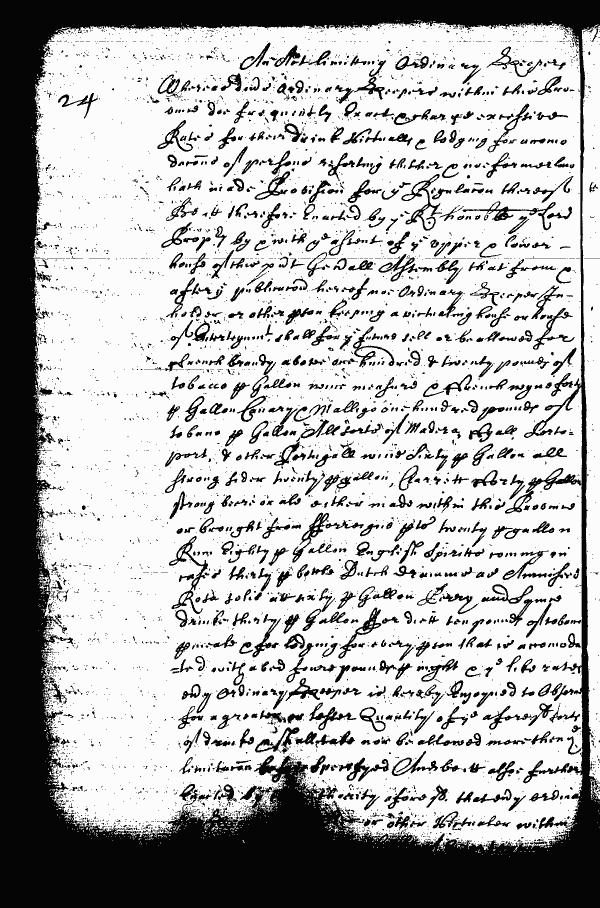 An Act limiting Ordinary Keepers
24
Whereas divers Ordinary Keepers within this Pro-
vince doe frequently Exact & charge excessive
Rates for their drink Victualls & lodging for acomo
dacõns of persons resorting thither & noe former law
hath made Provision for yͤ Regulacon thereof
Be itt therefore Enacted by yͤ Rͭ honoᵇˡᵉ yͤ Lord
Propͬʸ by & with yͤ assent of yͤ upper & lower
house of this pͬsͭ Genͬall Assembly that from &
after yͤ publicacon hereof noe Ordinary Keeper In-
holder or other ꝑson keeping a victualing house or house
of Entertaynmͭ shall for yͤ future sell or be allowed for
ffrench brandy above one hundred & twenty pounds of
tobacco ꝑ Gallon wine measure & ffrench wyns forty
ꝑ Gallon Canary & Malligo one hundred pounds of
tobacco ꝑ Gallon All sorts of Madera, ffyall, Porto-
port, & other Portugall wins Sixty ꝑ Gallon all
strong Sider twenty ꝑ gallon, Clarrett fforty ꝑ Gallon
strong beere or ale either made within this Province
or brought from fforreigne ꝑts twenty ꝑ gallon
Rum Eighty ꝑ Gallon English Spiritts comeing in
cases thirty ꝑ bottle Dutch dramms as Anniseed
Rosa solis att sixty ꝑ Gallon Perry and
drinke thirty ꝑ Gallon ffor diett ten pounds of tobacco
ꝑ meale & for lodging for every ꝑson that is acomoda
-ted with a bed foure pounds ꝑ night & yͤ like rates
evͬy Ordinary Keeper is hereby Enjoyned to Observe
for a greater or lesser Quantity of yͤ aforesͩ sorts
of drinke & shall take nor be allowed more then yͤ
limitacõn before Specifyed And be itt alsoe further
Enacted by thority aforesͩ. that evͬy ordina
or other Victualer within